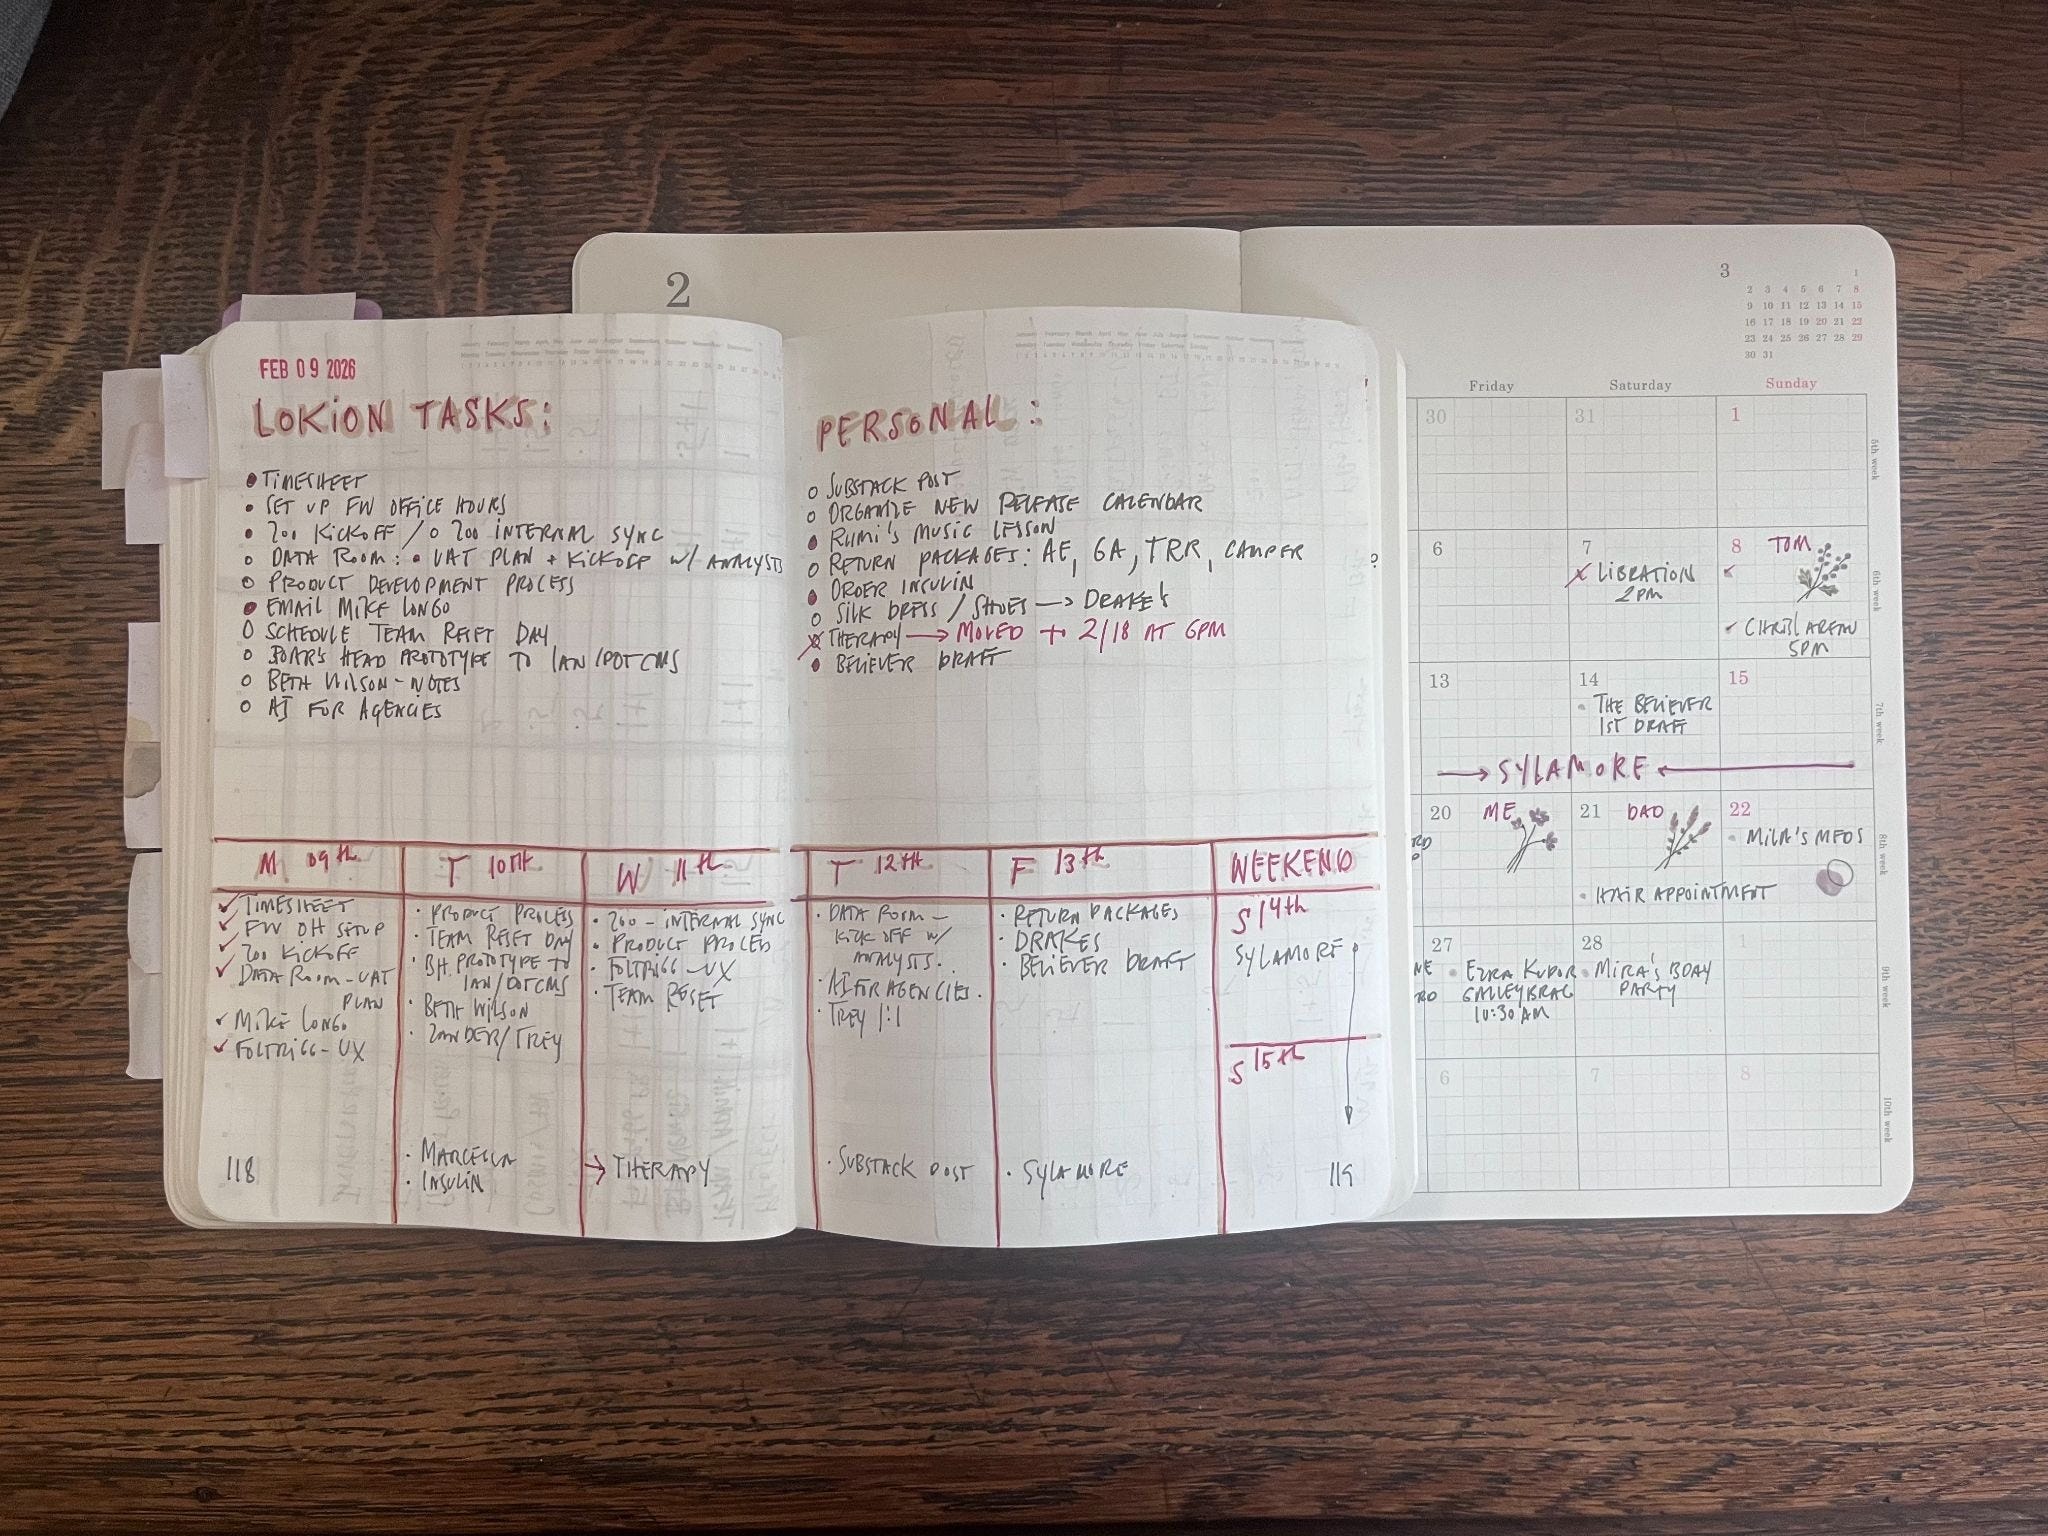 2
FEB 09 2026
LOKION TASKS:
TIMESHEET
SET UP FW OFFICE HOURS
200 KICKOFF / 200 INTERNAL SYNC
DATA ROOM: UAT PLAN + KICKOFF W/ ANALYSTS
PRODUCT DEVELOPMENT PROCESS
EMAIL MIKE LONGO
SCHEDULE TEAM RESET DAY
BOAR'S HEAD PROTOTYPE TO IAN/DOTCMS
BETH WILSON - NOTES
AI FOR AGENCIES
M 09th
TIMESHEET
FW OH SETUP
200 KICKOFF
DATA ROOM - UAT
PLAN
MIKE LONGO
FOLTRIGG - UX
118
T 10th
PRODUCT PROCESS
TEAM RESET DAY
BH PROTOTYPE TO
IAN/DOTCMS
BETH WILSON
ZANDER/TREY
MARCELLA
INSULIN
W 11th
200 - INTERNAL SYNC
PRODUCT PROCESS
FOLTRIGG - UX
TEAM RESET
→ THERAPY
PERSONAL:
SUBSTACK POST
ORGANIZE NEW RELEASE CALENDAR
RUMI'S MUSIC LESSON
RETURN PACKAGES: AE, GA, TRR, CAMPER
ORDER INSULIN
SILK DRESS / SHOES → DRAKE'S
THERAPY → MOVED TO 2/18 AT 6PM
BELIEVER DRAFT
T 12TH
DATA ROOM -
KICK OFF W/
ANALYSTS.
AI FOR AGENCIES.
TREY 1:1
SUBSTACK POST
F 13th
RETURN PACKAGES
DRAKES
BELIEVER DRAFT
SYLAMORE
WEEKEND
S 14th
SYLAMORE
S 15th
119
3
1
2 3 4 5 6 7 8
9 10 11 12 13 14 15
16 17 18 19 20 21 22
23 24 25 26 27 28 29
30 31
Friday Saturday Sunday
30 31 1
5th week
6
7
LIBRATION
2PM
8 TOM
5PM
6th week
13
14
THE BELIEVER
1ST DRAFT
15
7th week
→ SYLAMORE ←
20 ME
21 DAD
HAIR APPOINTMENT
22
MILA'S MEDS
8th week
27
EZRA
10:30 AM
28
MIRA'S BDAY
PARTY
1
9th week
6 7 8
10th week